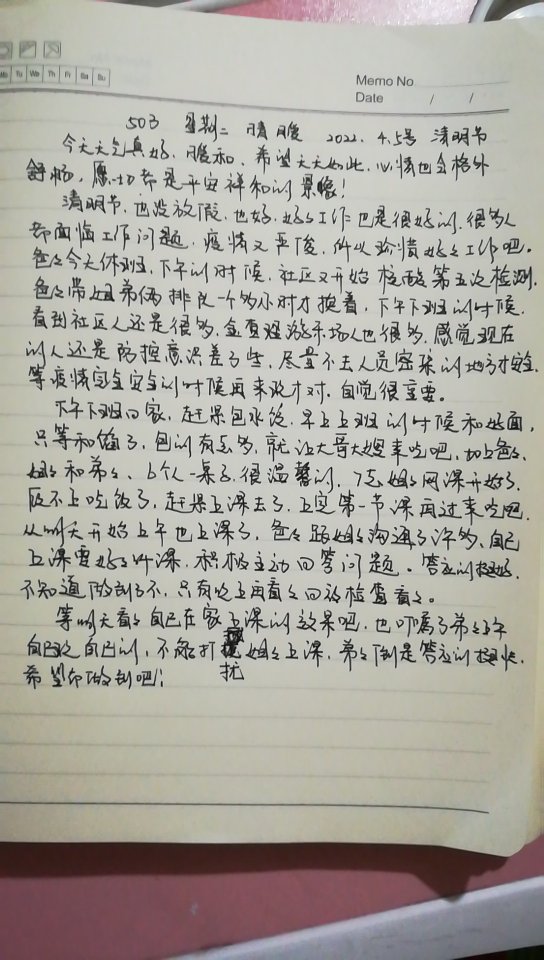 Mo Tu We Th Fr Sa Su
Memo No
Date / /
503 星期二 晴 暖 2022.4.5号 清明节
今天天气真好，暖和，希望天天如此，心情也会格外
舒畅，愿一切都是平安祥和的景像！
清明节，也没放假，也好，好好工作也是很好的，很多人
都面临工作问题，疫情又严峻，所以珍惜好好工作吧。
爸爸今天休班，下午的时候，社区又开始核酸第五次检测，
爸爸带姐弟俩排队一个多小时才挨着，下午下班的时候，
看到社区人还是很多，金查理游乐场人也很多，感觉现在
的人还是防控意识差了些，尽量不去人员密集的地方才安全，
等疫情完全安全的时候再来玩才对，自觉很重要。
下午下班回家，赶紧包水饺，早上上班的时候和好面，
只等和馅了，包的有点多，就让大哥大嫂来吃吧，加上爸爸、
姐姐和弟弟，6个人一桌子，很温馨的，7点姐姐网课开始了，
顾不上吃饭了，赶紧上课去了，上完第一节课再过来吃吧，
从明天开始上午也上课了，爸爸跟姐姐沟通了许多，自己
上课要好好听课，积极主动回答问题。答应的挺好，
不知道做到了不，只有晚上再看看回放检查看看。
等明天看看自己在家上课的效果吧，也叮嘱了弟弟上午
自己玩自己的，不能打扰姐姐上课，弟弟倒是答应的挺快，
希望都做到吧！
扰